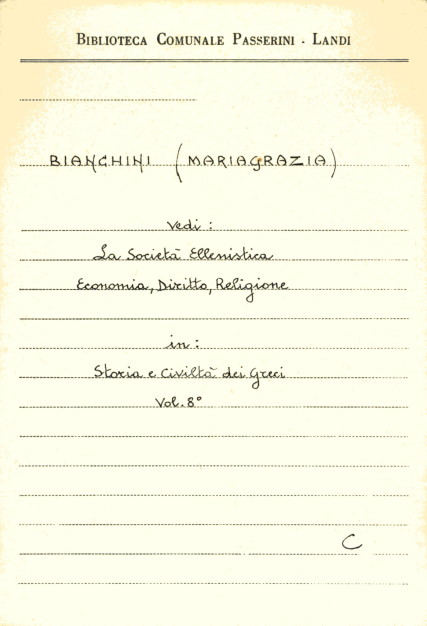 BIBLIOTECA COMUNALE PASSERINI - LANDI
BIANCHINI (MARIAGRAZIA)
Vedi:
La Società Ellenistica
Economia, Diritto, Religione
in:
Storia e Civiltà dei Greci
Vol. 8°
C